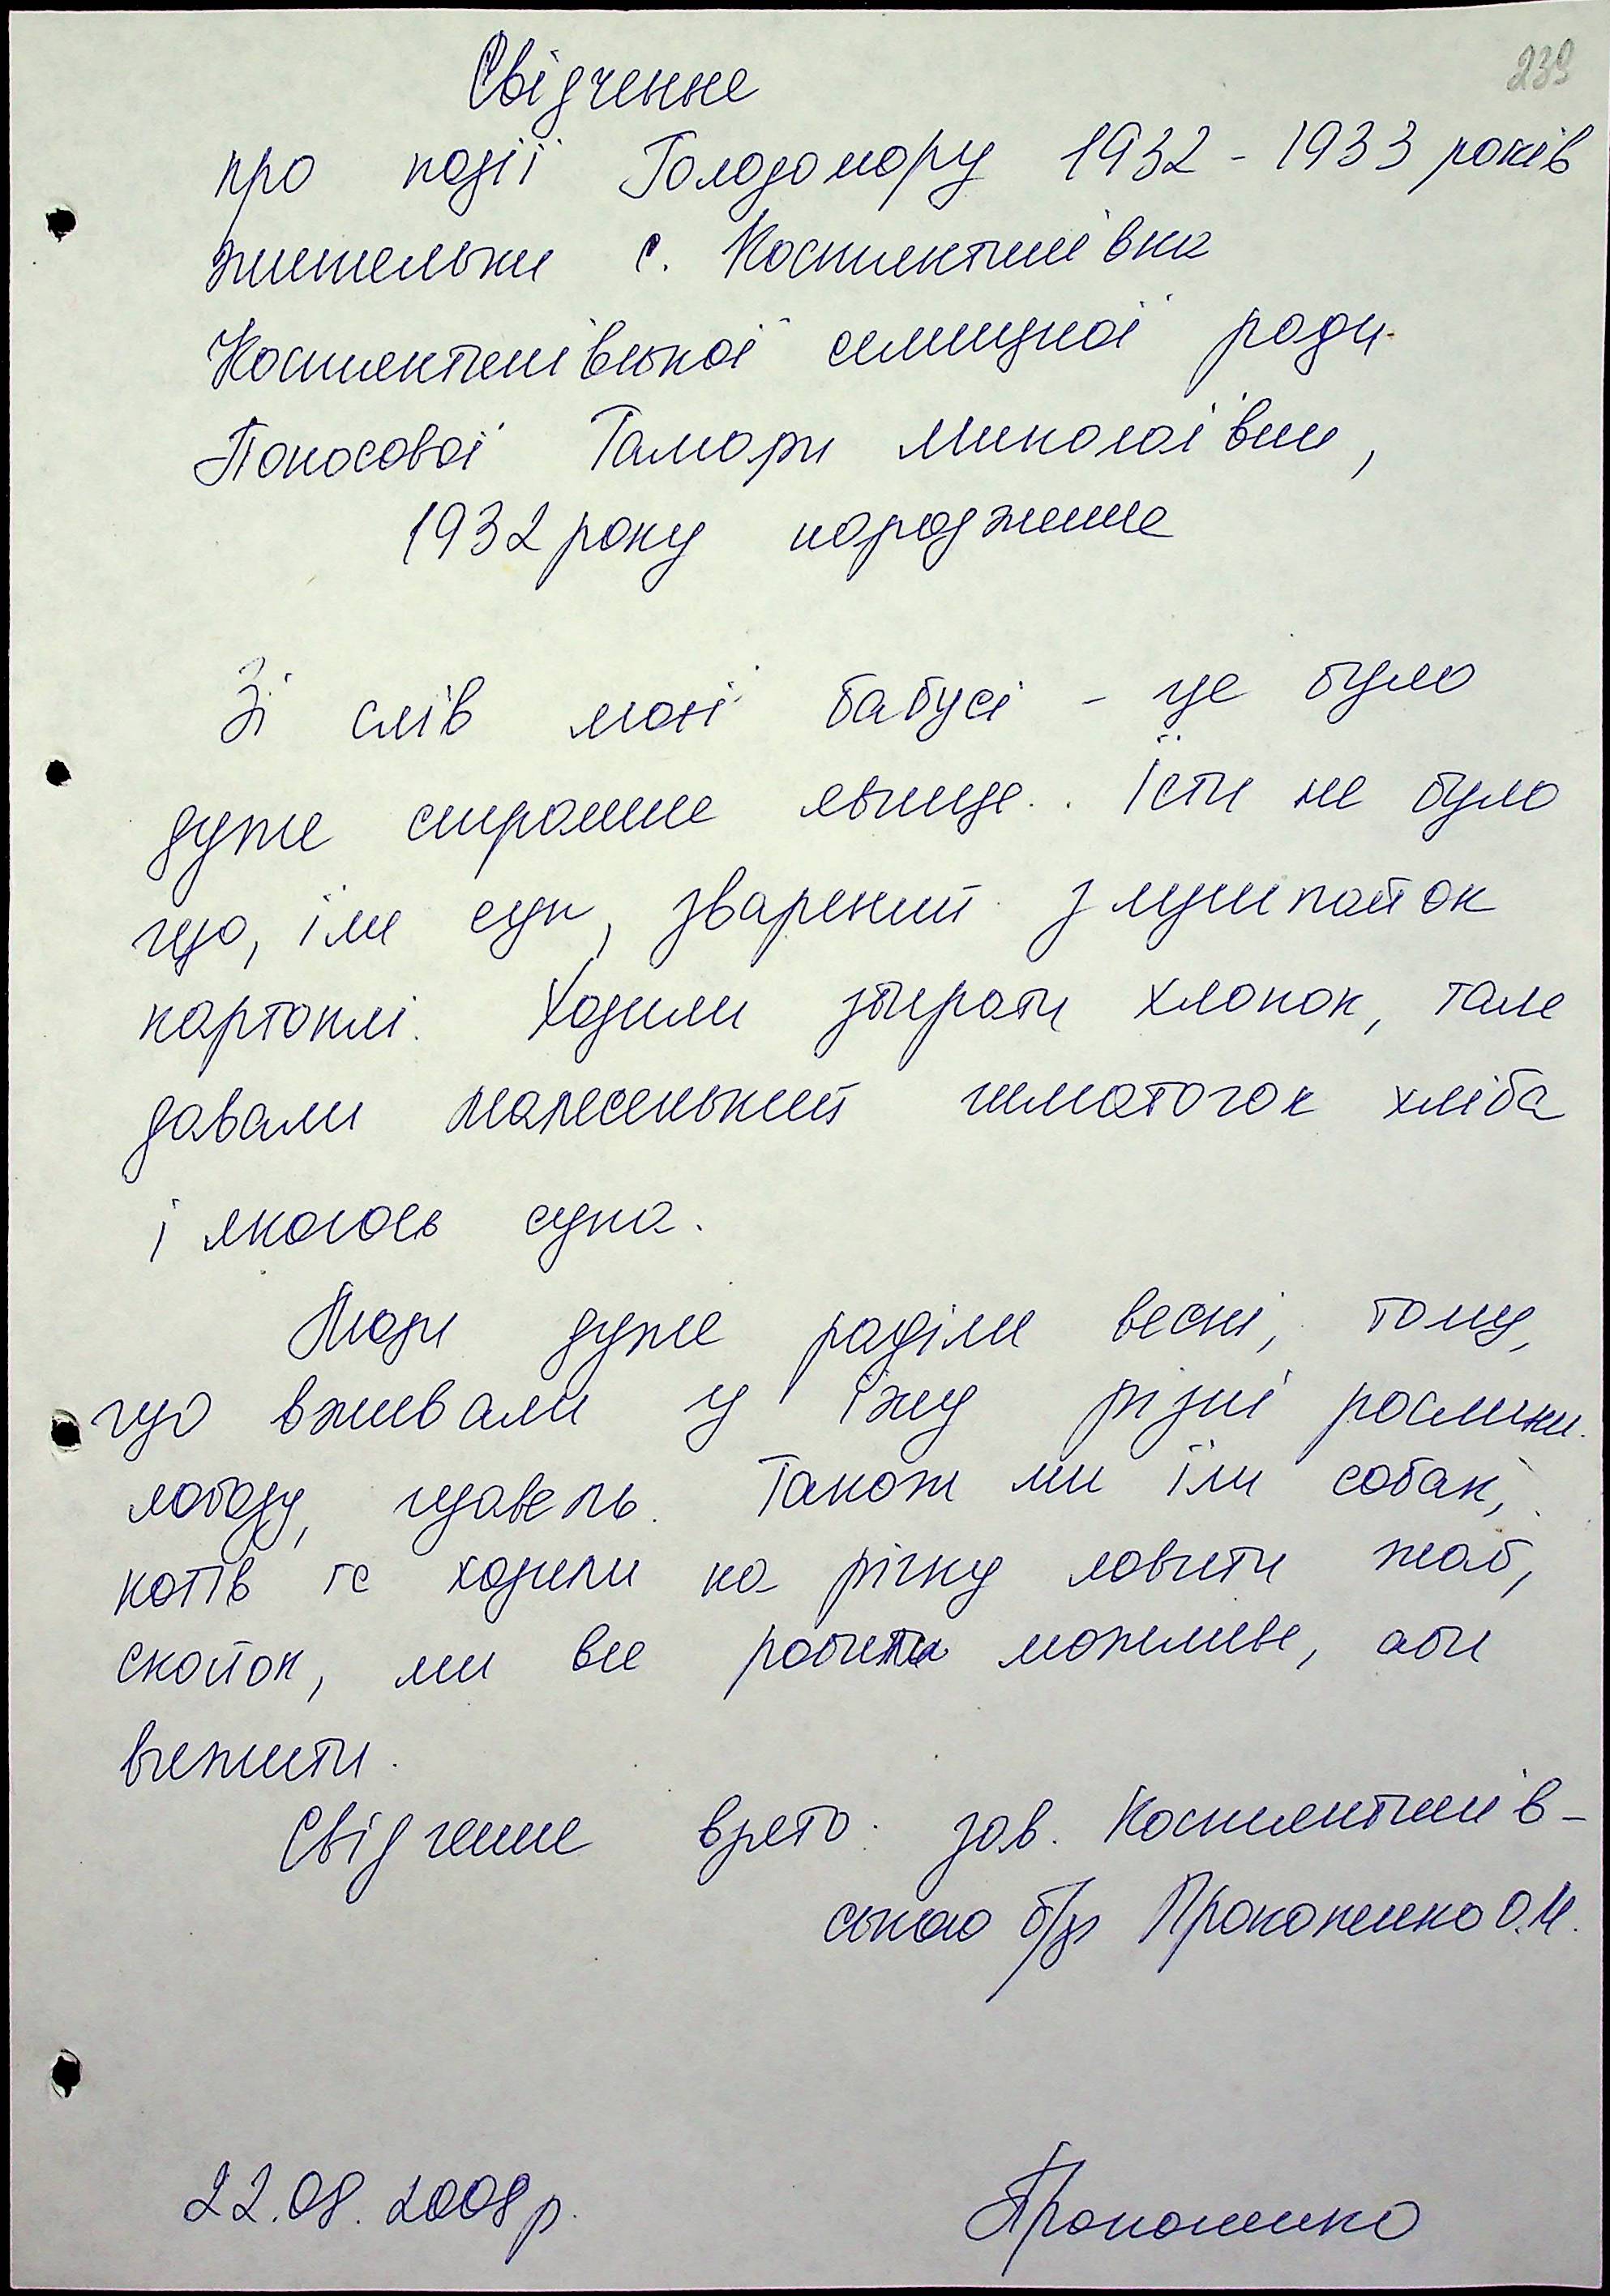 239
Свідчення
про події Голодомору 1932 - 1933 років
жительки с. Костянтинівка
Костянтинівської селищної ради
Покосової Тамари Миколаївни,
1932 року народження
Зі слів моєї бабусі - це було
дуже страшне явище. Їсти не було
що, їли суп, зварений з лушпайок
картоплі. Ходили збирати хлопок, там
давали малесенький шматочок хліба
і якогось супа.
Люди дуже раділи весні, тому,
що вживали у їжу різні рослини.
лободу, щавель. Також ми їли собак,
котів та ходили на річку ловити жаб,
скойок, ми все робили можливе, аби
вижити.
Свідчення взято: зав. Костянтинів-
ською б/ф О.М.
22.08.2008 р.